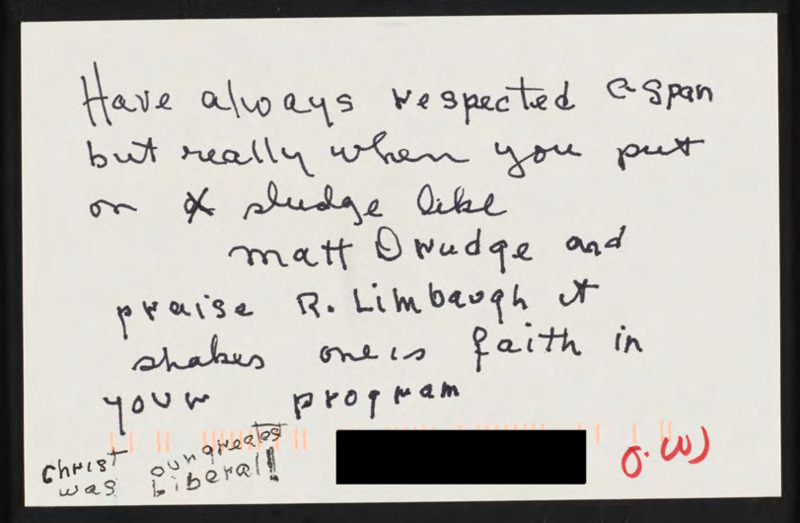 Have always respected C-Span
but really when you put
on sludge like
Matt Drudge and
praise R. Limbaugh it
shakes one is faith in
your program
Christ our greatest
was Liberal!
O.W)